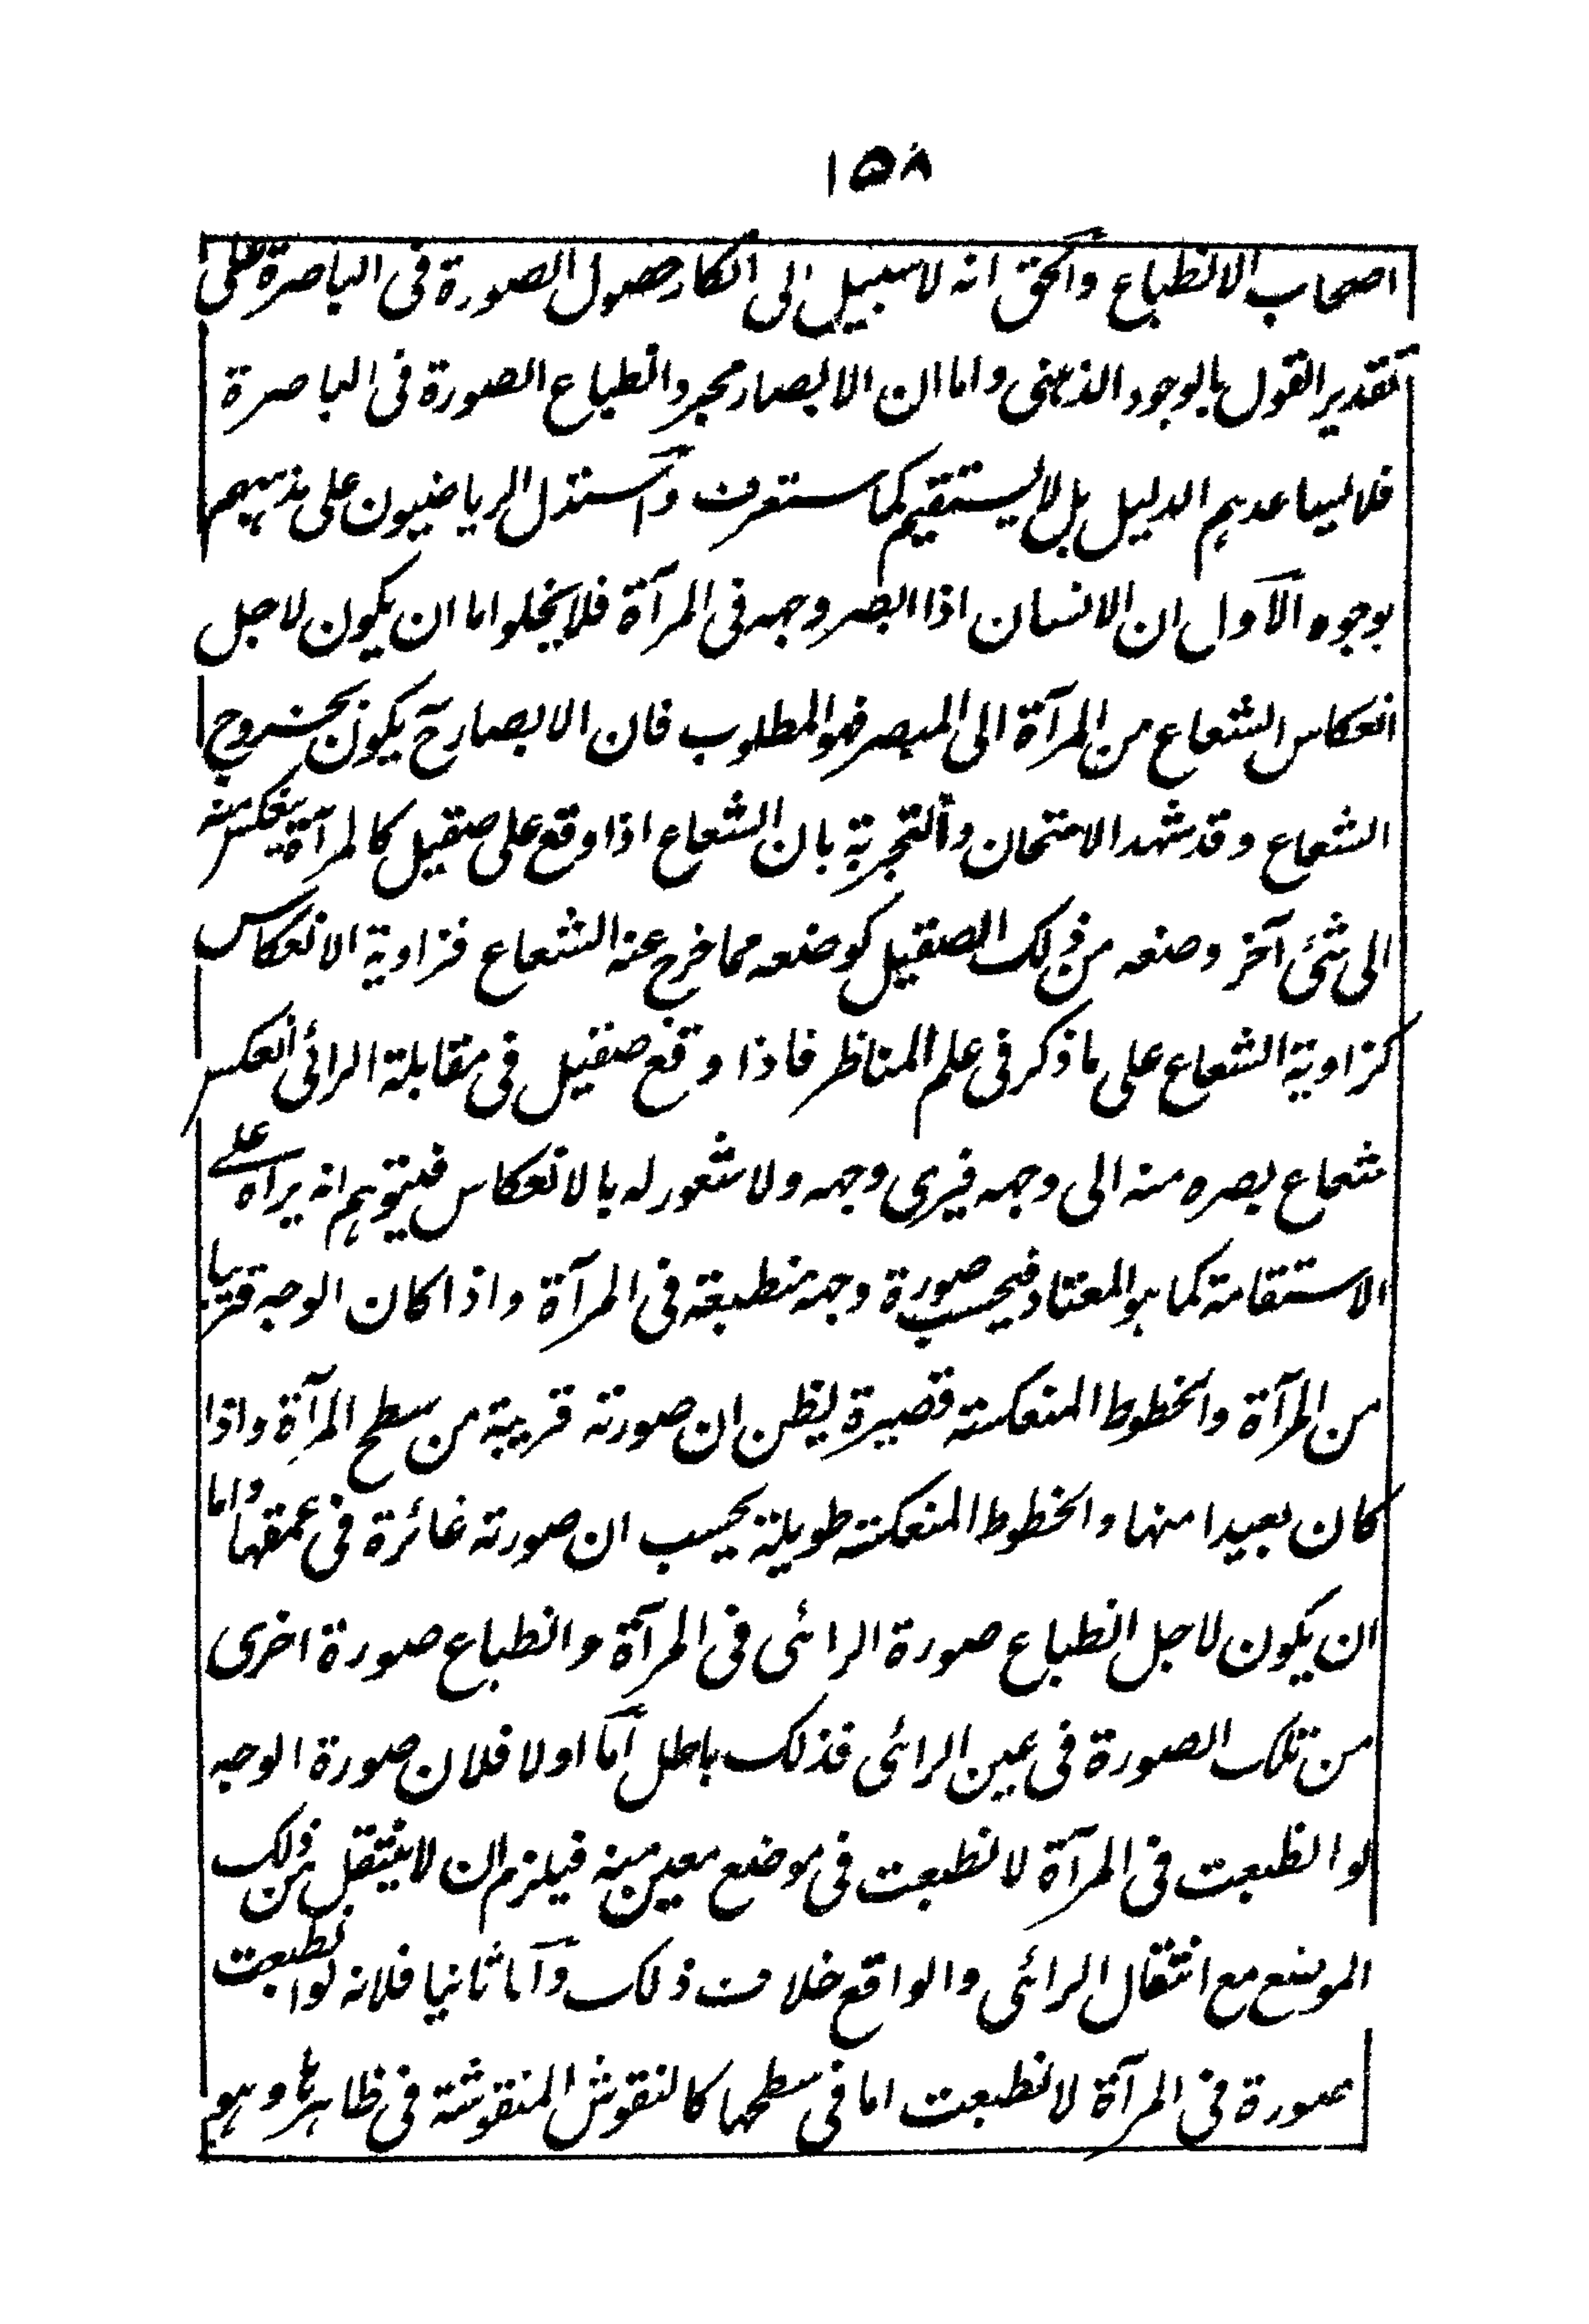 ١٥٨
اصحاب الانطباع والحق انه لا سبيل الى انكار حصول الصورة فى الباصرة على
تقدير القول بالوجود الذهنى واما ان الابصار مجرد انطباع الصورة فى الباصرة
فلا يساعدهم الدليل بل لا يستقيم كما ستعرف واستدل الرياضيون على مذهبهم
بوجوه الآول ان الانسان اذا ابصر وجهه فى المرآة فلا يخلوا اما ان يكون لاجل
انعكاس الشعاع من المرآة الى المبصر فهو المطلوب فان الابصار ح يكون بخروج
الشعاع وقد شهد الامتحان والتجربة بان الشعاع اذا وقع على صقيل كالمرآة ينعكس منه
الى شئ آخر وضعه من ذلك الصقيل كوضعه مما خرج عنه الشعاع فزاوية الانعكاس
كزاوية الشعاع على ما ذكر فى علم المناظر فاذا وقع صقيل فى مقابلة الرائى انعكس
شعاع بصره منه الى وجهه فيرى وجهه ولا شعور له بالانعكاس فيتوهم انه يراه على
الاستقامة كما هو المعتاد فيحسب صورة وجهه منطبعة فى المرآة واذا كان الوجه قريبا
من المرآة والخطوط المنعكسة قصيرة يظن ان صورته قريبة من سطح المرآة واذا
كان بعيدا منها والخطوط المنعكسة طويلة يحسب ان صورته غائرة فى عمقها واما
ان يكون لاجل انطباع صورة الرائى فى المرآة وانطباع صورة اخرى
من تلك الصورة فى عين الرائى فذلك باطل آما اولا فلان صورة الوجه
لو انطبعت فى المرآة لانطبعت فى موضع معين منه فيلزم ان لا ينتقل من ذلك
الموضع مع انتقال الرائى والواقع خلاف ذلك وآما ثانيا فلانه لو انطبعت
صورة فى المرآة لانطبعت اما فى سطحها كالنقوش المنقوشة فى ظاهرها وهو